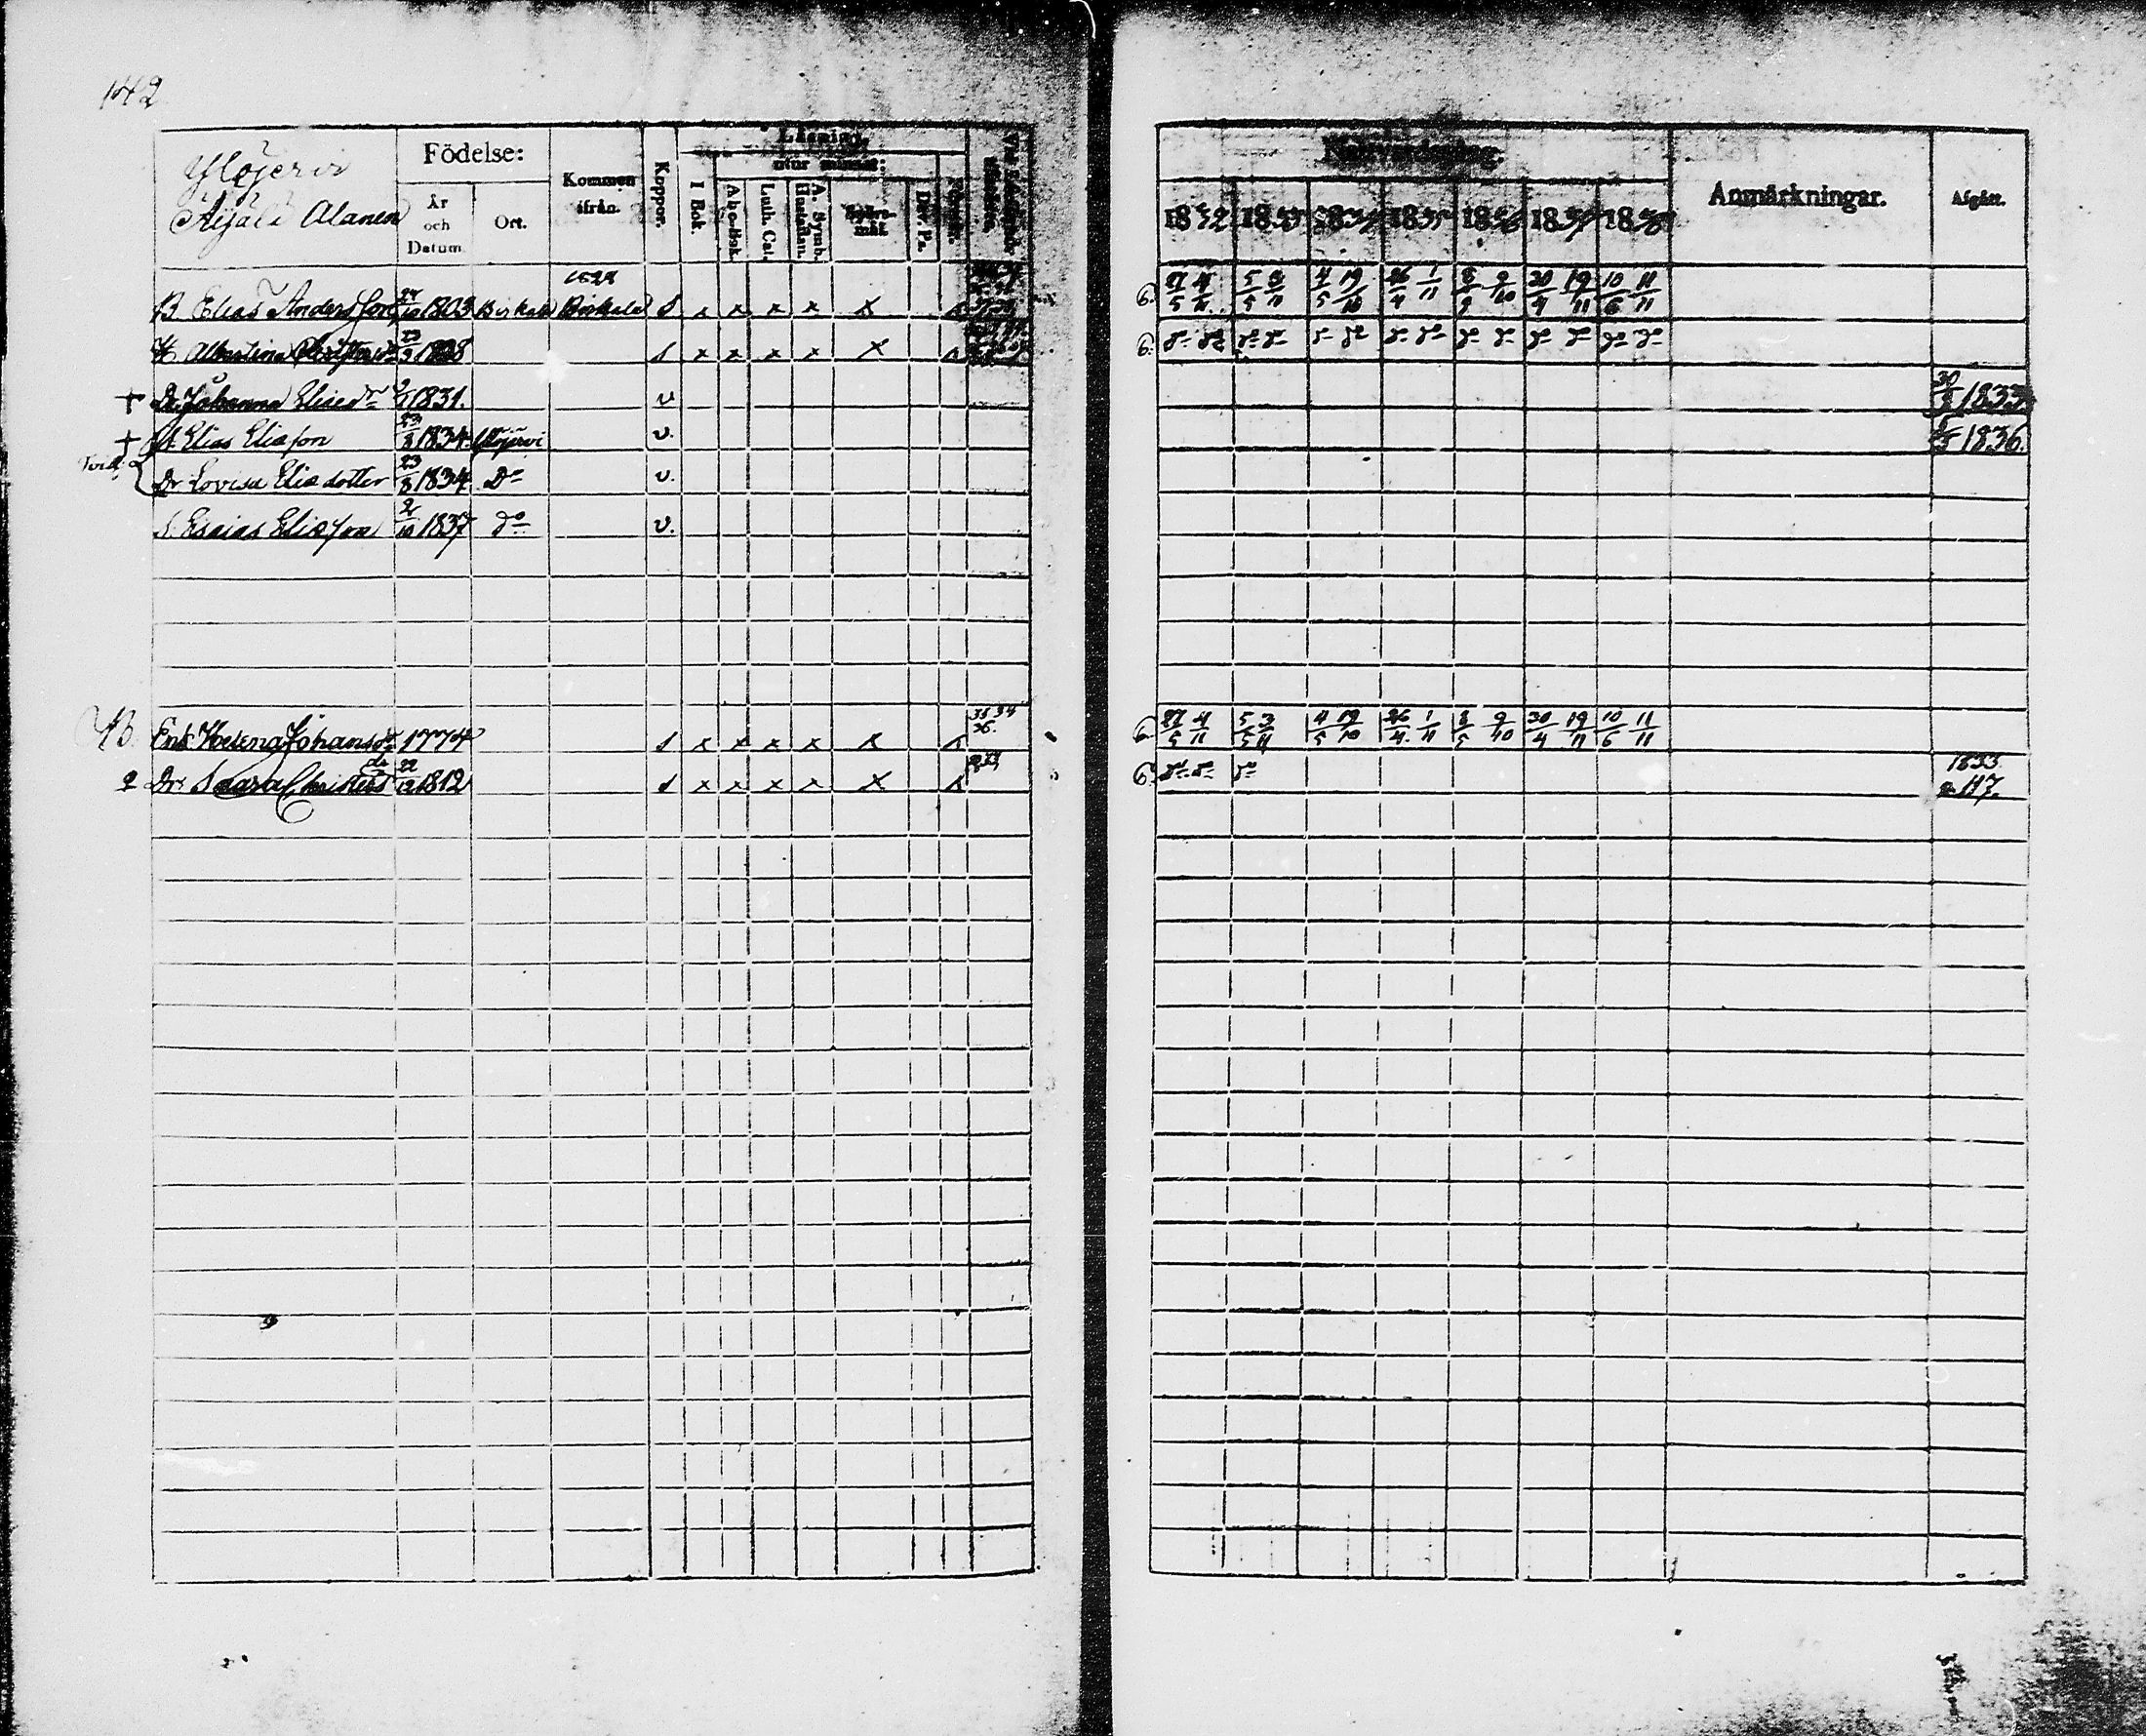 142
Ylöjervi
Äijälä Alanen
Födelse:
År och Datum
Ort.
Kommen ifrån.
Koppor.
Läsning.
utur minnet:
I Bok.
A b c-Bok.
Luth. Cat.
A. Symb.
Dav. Ps.
1832 1833 1834 1835 1836 1837 1838
Anmärkningar.
Afgått.
B Elias Andersson 24/10 1803 Birkala Birkala s x x x x x
27/5 4/11 5/5 3/11 4/5 19/10 26/4 1/11 9/10 30/4 19/11 10/6 11/11
H Albertina s x x x x x
do do do do do do do do do do do do do do
+ Dr Johanna Eliasdr 1831. v
30 1833.
+ S. Elias Eliasson 23/8 1834 Ylöjervi v.
1836.
Dr Lovisa Eliadotter 23/8 1834 Do v.
S. Esaias Eliasson 2/10 1837 do v.
Enk Helena Johansdr 1774 s x x x x x
35 34
36.
27/5 4/11 5/5 3/11 4/5 19/10 26/4 1/11 8/5 9/10 30/4 19/11 10/6 11/11
Dr Saara Christersdr 22/12 1812 s x x x x x
do do do
1833
117.